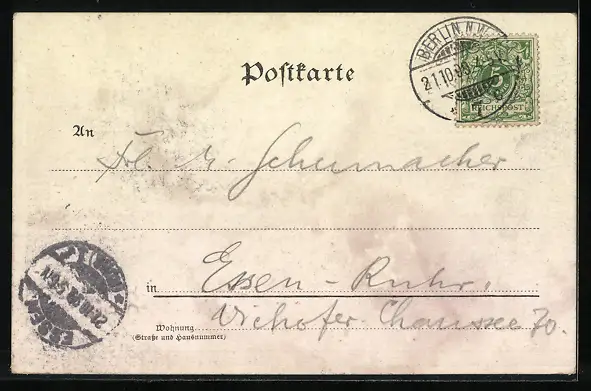 BERLIN, N.W.
21.10.98
REICHSPOST
Postkarte
An Frl. M. Schumacher
in Essen-Ruhr,
Wohnung
(Straße und Hausnummer)
Viehofer Chaussee 70.
ESSEN
(RUHR)